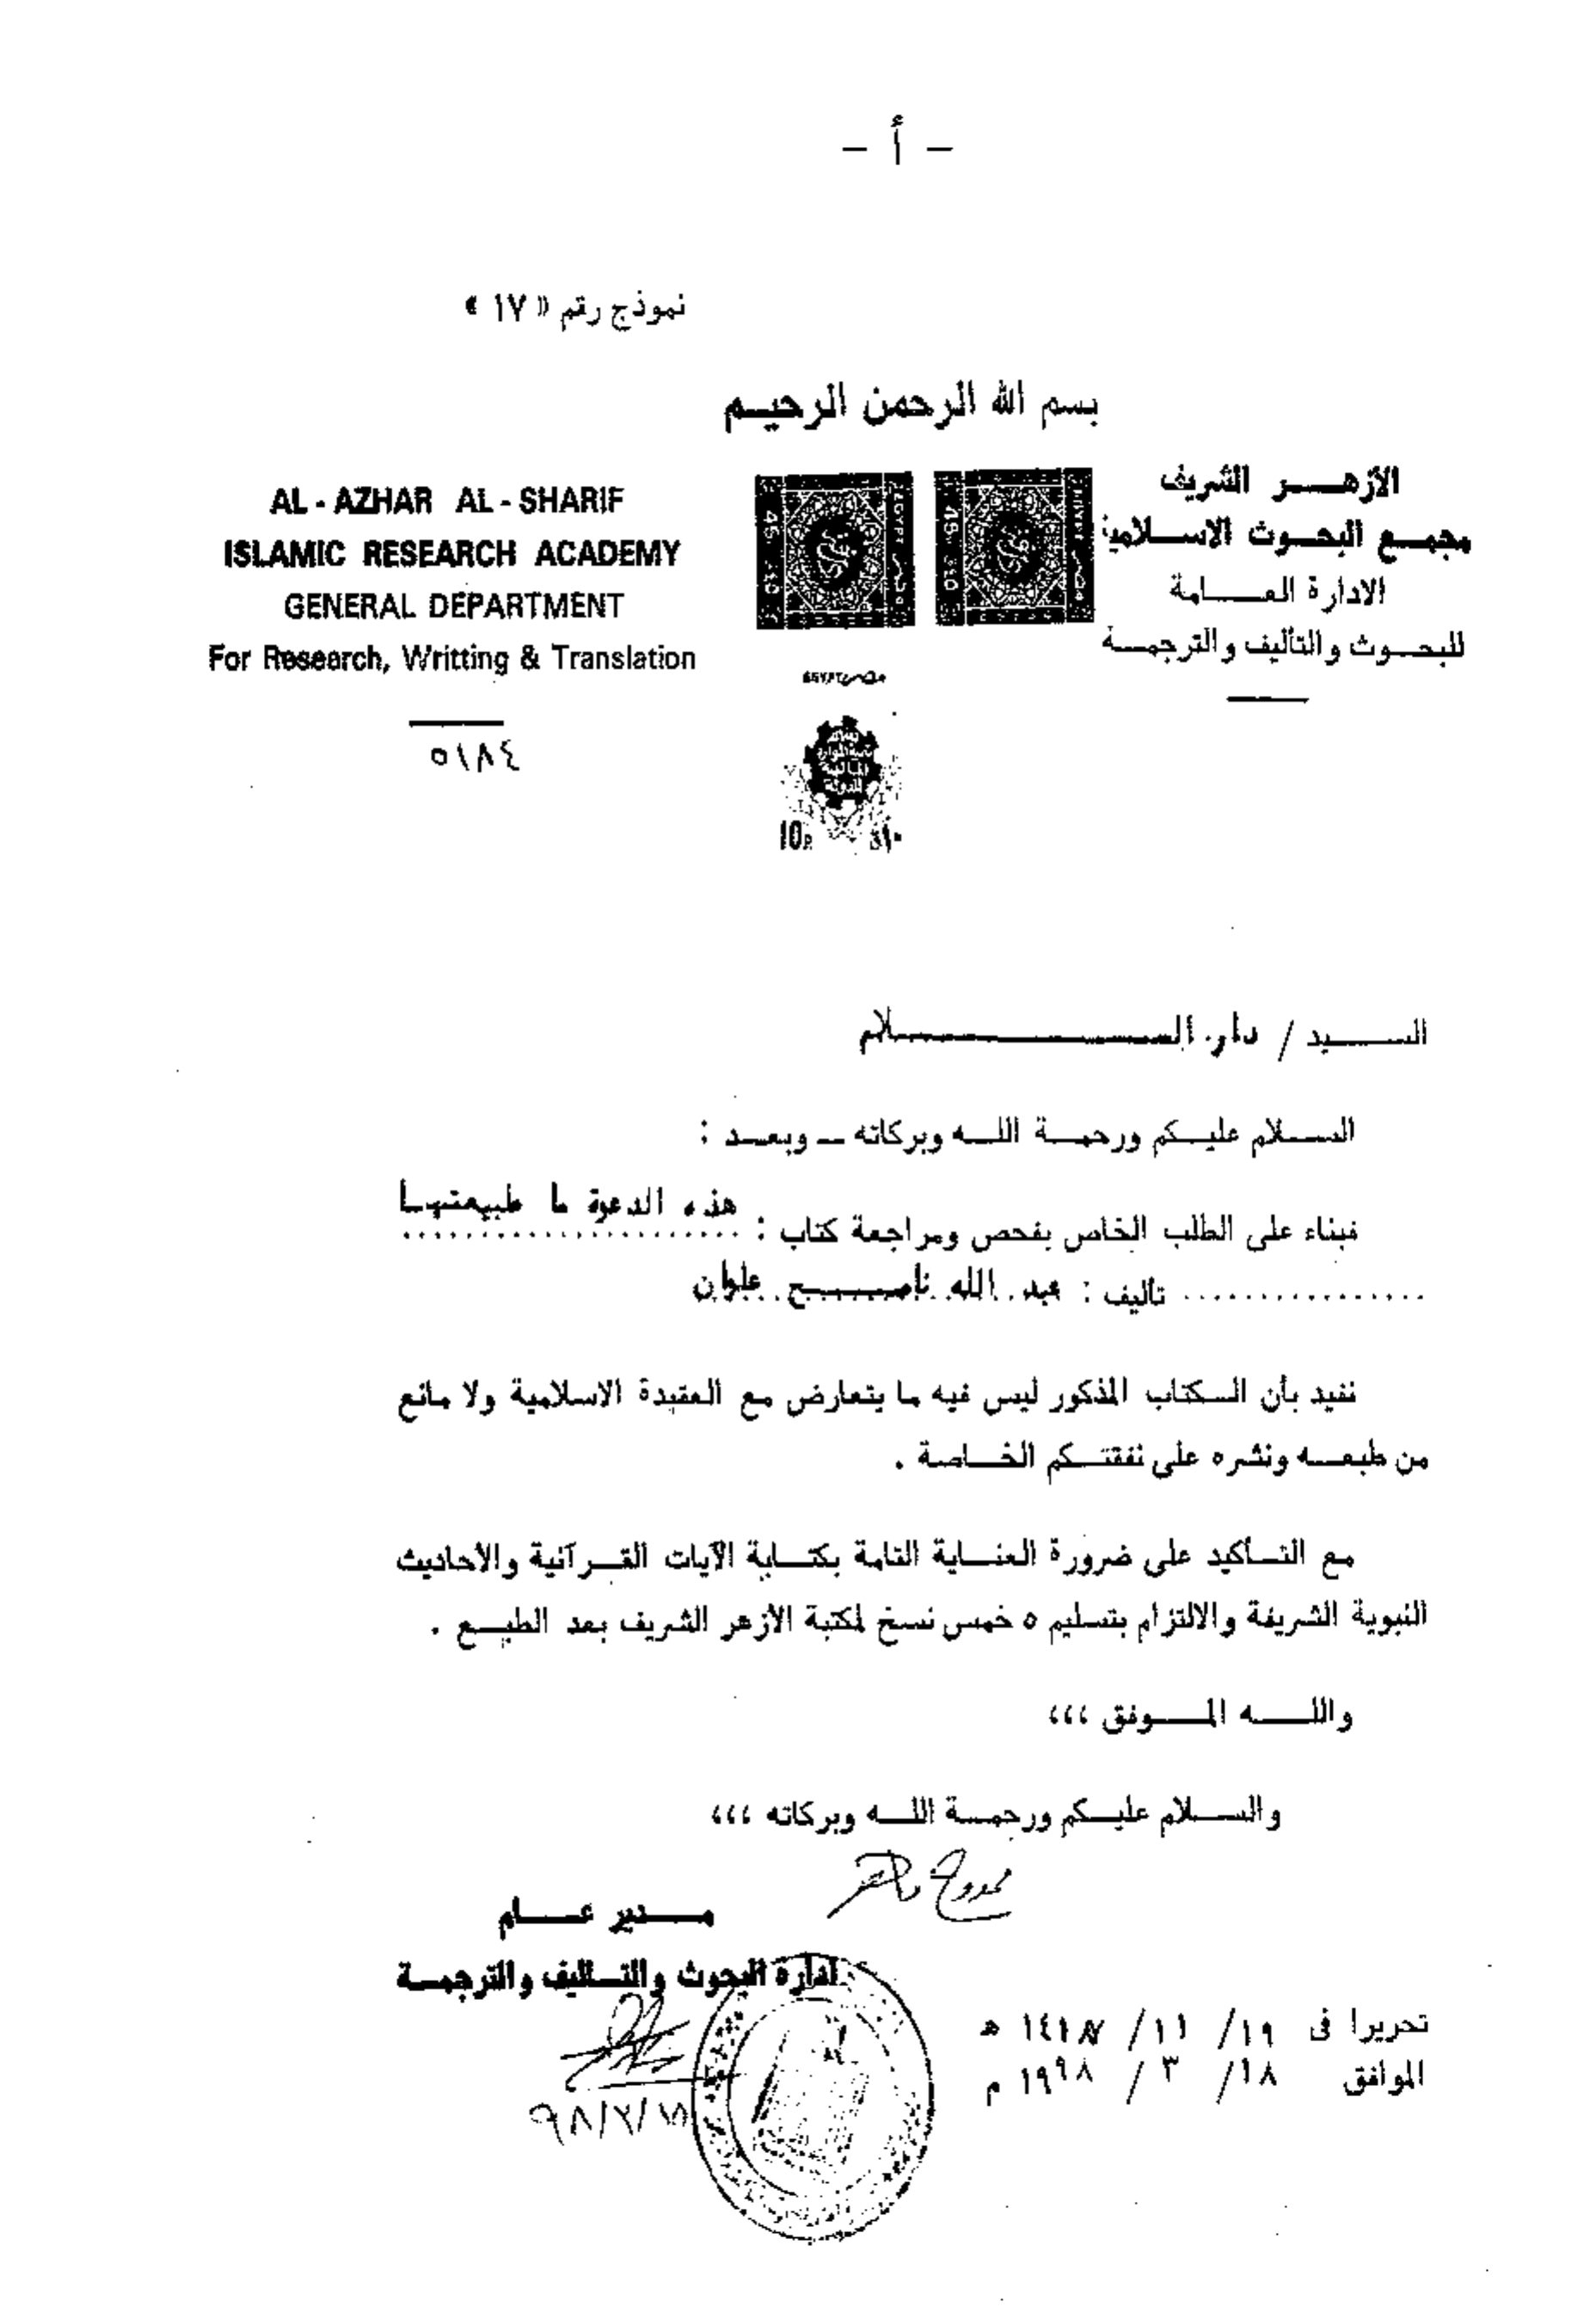 - أ -
نموذج رقم « ١٧ »
بسم الله الرحمن الرحيم
الازهر الشريف
مجمع البحوث الاسلامية
الادارة العامة
للبحوث والتأليف والترجمة
AL - AZHAR AL - SHARIF
ISLAMIC RESEARCH ACADEMY
GENERAL DEPARTMENT
For Research, Writting & Translation
٥١٨٤
EGYPT مصر
10P
السيد / دار السلام
السلام عليكم ورحمة الله وبركاته – وبعد :
فبناء على الطلب الخاص بفحص ومراجعة كتاب : هذه الدعوة ما طبيعتها
................ تأليف : عبد الله ناصح علوان
نفيد بأن الكتاب المذكور ليس فيه ما يتعارض مع العقيدة الاسلامية ولا مانع
من طبعه ونشره على نفقتكم الخاصة .
مع التأكيد على ضرورة العناية التامة بكتابة الآيات القرآنية والأحاديث
النبوية الشريفة والالتزام بتسليم ٥ خمس نسخ لمكتبة الأزهر الشريف بعد الطبع .
والله الموفق ،،،
والسلام عليكم ورحمة الله وبركاته ،،،
مدير عام
ادارة البحوث والتأليف والترجمة
تحريرا فى ١٩ / ١١ / ١٤١٨ هـ
الموافق ١٨ / ٣ / ١٩٩٨ م